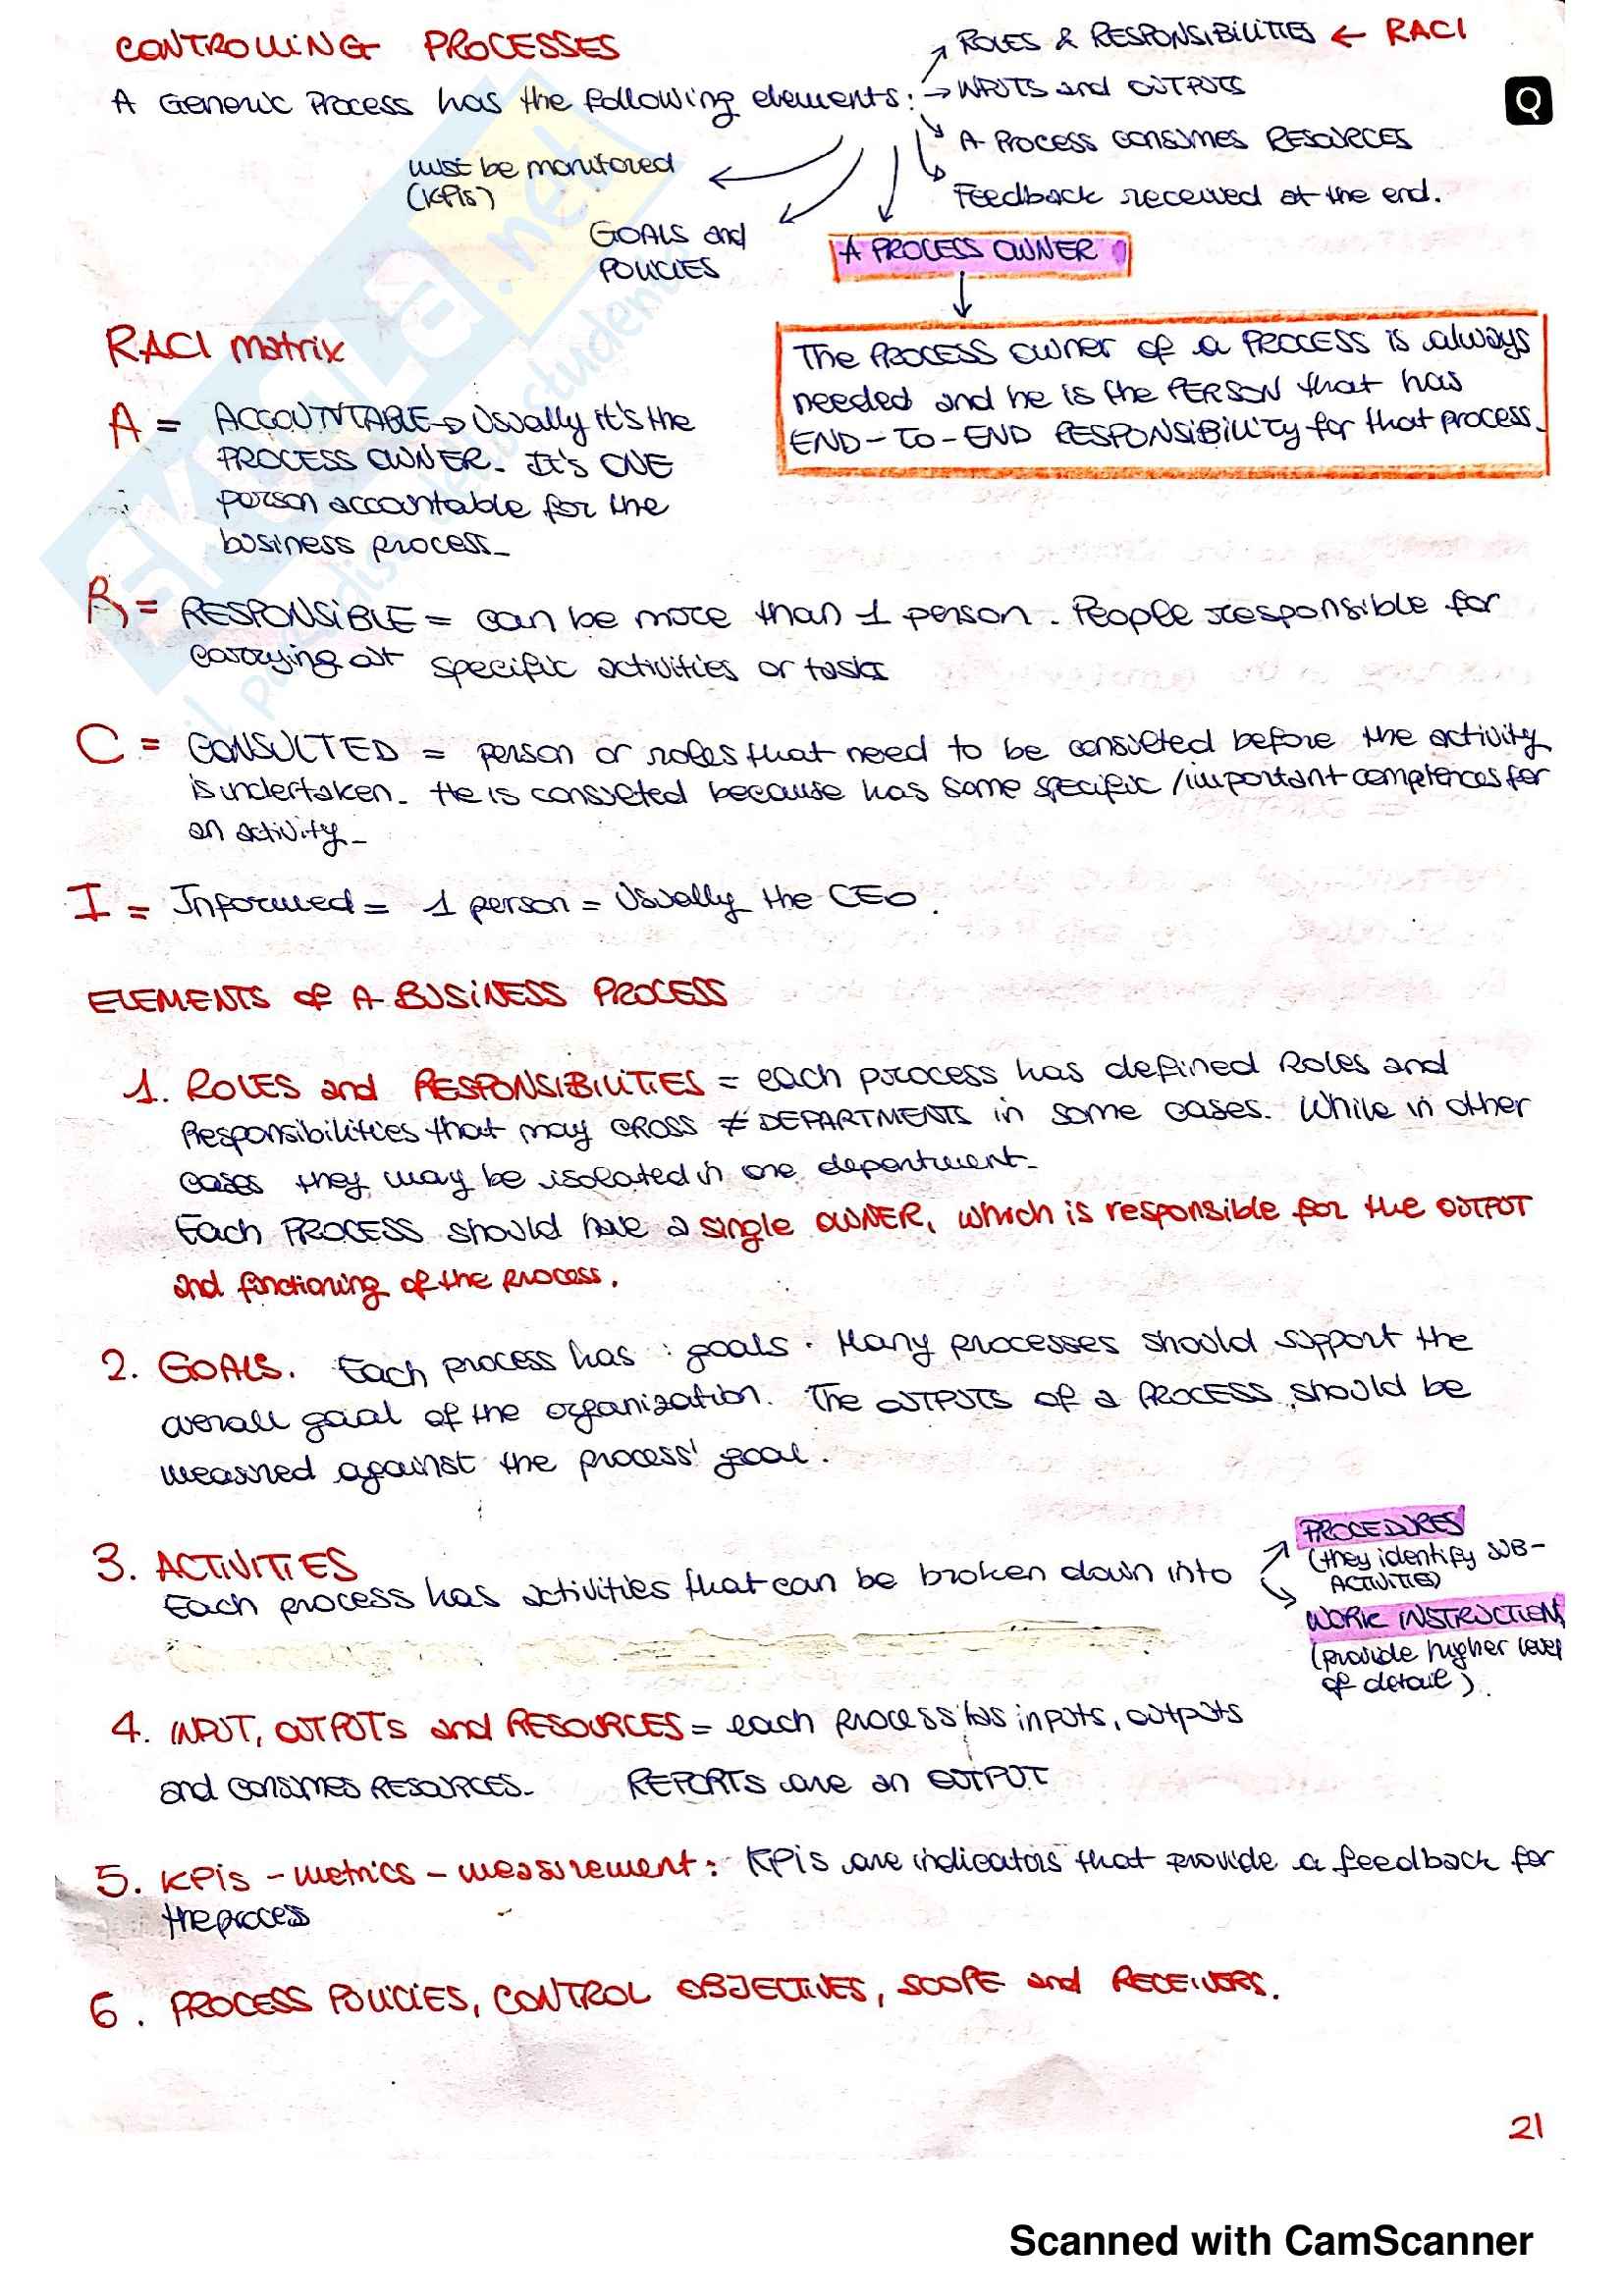 CONTROLLING PROCESSES
A Generic Process has the following elements:
→ ROLES & RESPONSIBILITIES ← RACI
→ INPUTS and OUTPUTS
Q
A PROCESS CONSUMES RESOURCES
Feedback received at the end.
must be monitored
(KPIs)
GOALS and
POLICIES
A PROCESS OWNER
The PROCESS owner of a PROCESS is always
needed and he is the PERSON that has
END-TO-END RESPONSIBILITY for that process.
RACI matrix
A = ACCOUNTABLE → Usually it's the
PROCESS OWNER. It's ONE
person accountable for the
business process_
R = RESPONSIBLE = can be more than 1 person. People responsible for
carrying out specific activities or tasks
C = CONSULTED = person or roles that need to be consulted before the activity
is undertaken_ He is consulted because has some specific /important competences for
an activity_
I = Informed = 1 person = Usually the CEO.
ELEMENTS of A BUSINESS PROCESS
1. ROLES and RESPONSIBILITIES = each process has defined Roles and
Responsibilities that may CROSS ≠ DEPARTMENTS in some cases. While in other
cases they may be isolated in one department_
Each PROCESS should have a single OWNER, which is responsible for the OUTPUT
and functioning of the process.
2. GOALS. Each process has : goals. Many processes should support the
overall goal of the organization. The OUTPUTS of a PROCESS should be
measured against the process' goal.
3. ACTIVITIES
Each process has activities that can be broken down into
PROCEDURES
(they identify SUB-
ACTIVITIES)
WORK INSTRUCTION
(provide higher level
of detail).
4. INPUT, OUTPUTS and RESOURCES = each process has inputs, outputs
and CONSUMES RESOURCES_ REPORTS are an OUTPUT
5. KPIs - metrics - measurement: KPIs are indicators that provide a feedback for
the process
6. PROCESS POLICIES, CONTROL OBJECTIVES, SCOPE and RECEIVERS.
21
SKUOLA.net
il paradiso dello studente
Scanned with CamScanner